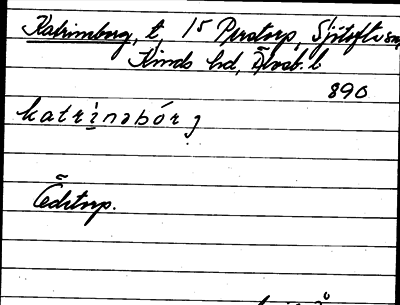 Katrineberg, t, 15 Perstorp, Sjötofta sn,
Kinds hd, Älvsb. l
890
katrinəbórj
torp.